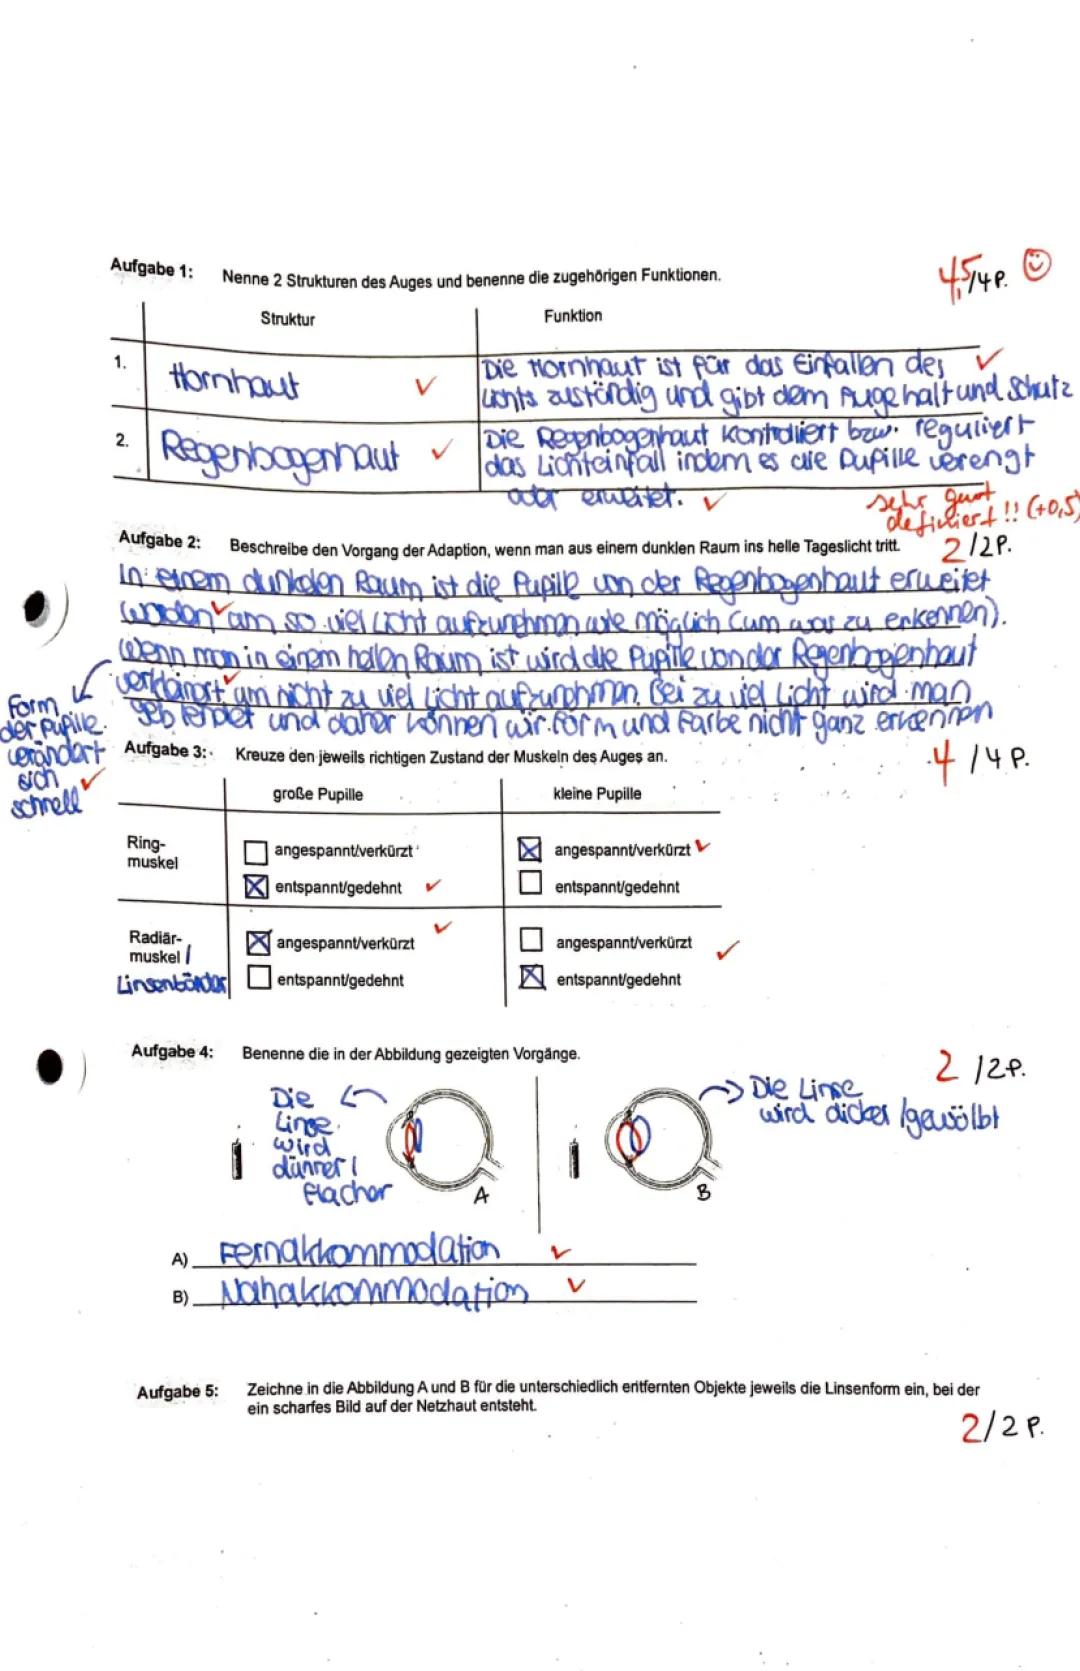 Aufgabe 1: Nenne 2 Strukturen des Auges und benenne die zugehörigen Funktionen.
4,5/4P.
Struktur Funktion
1. Hornhaut Die Hornhaut ist für das Einfallen des
Lichts zuständig und gibt dem Auge halt und Schutz
2. Regenbogenhaut Die Regenbogenhaut kontrolliert bzw. reguliert
das Lichteinfall indem es die Pupille verengt
oder erweitet.
sehr gut
definiert!! (+0,5)
Aufgabe 2: Beschreibe den Vorgang der Adaption, wenn man aus einem dunklen Raum ins helle Tageslicht tritt.
2/2P.
In einem dunkelen Raum ist die Pupille von der Regenbogenhaut erweitet
worden um so viel Licht aufzunehmen wie möglich (um was zu erkennen).
Wenn man in einem hellen Raum ist wird die Pupille von der Regenbogenhaut
verkleinert um nicht zu viel Licht aufzunehmen. Bei zu viel Licht wird man
geblendet und daher können wir Form und Farbe nicht ganz erkennen
Form
der Pupille
verändert
sich
schnell
Aufgabe 3: Kreuze den jeweils richtigen Zustand der Muskeln des Auges an.
4/4P.
große Pupille kleine Pupille
Ring-
muskel
angespannt/verkürzt angespannt/verkürzt
entspannt/gedehnt entspannt/gedehnt
Radiär-
muskel /
Linsenbänder
angespannt/verkürzt angespannt/verkürzt
entspannt/gedehnt entspannt/gedehnt
Aufgabe 4: Benenne die in der Abbildung gezeigten Vorgänge.
2/2P.
Die
Linse
wird
dünner/
flacher
A
Die Linse
wird dicker/gewölbt
B
A) Fernakkommodation
B) Nahakkommodation
Aufgabe 5: Zeichne in die Abbildung A und B für die unterschiedlich entfernten Objekte jeweils die Linsenform ein, bei der
ein scharfes Bild auf der Netzhaut entsteht.
2/2P.